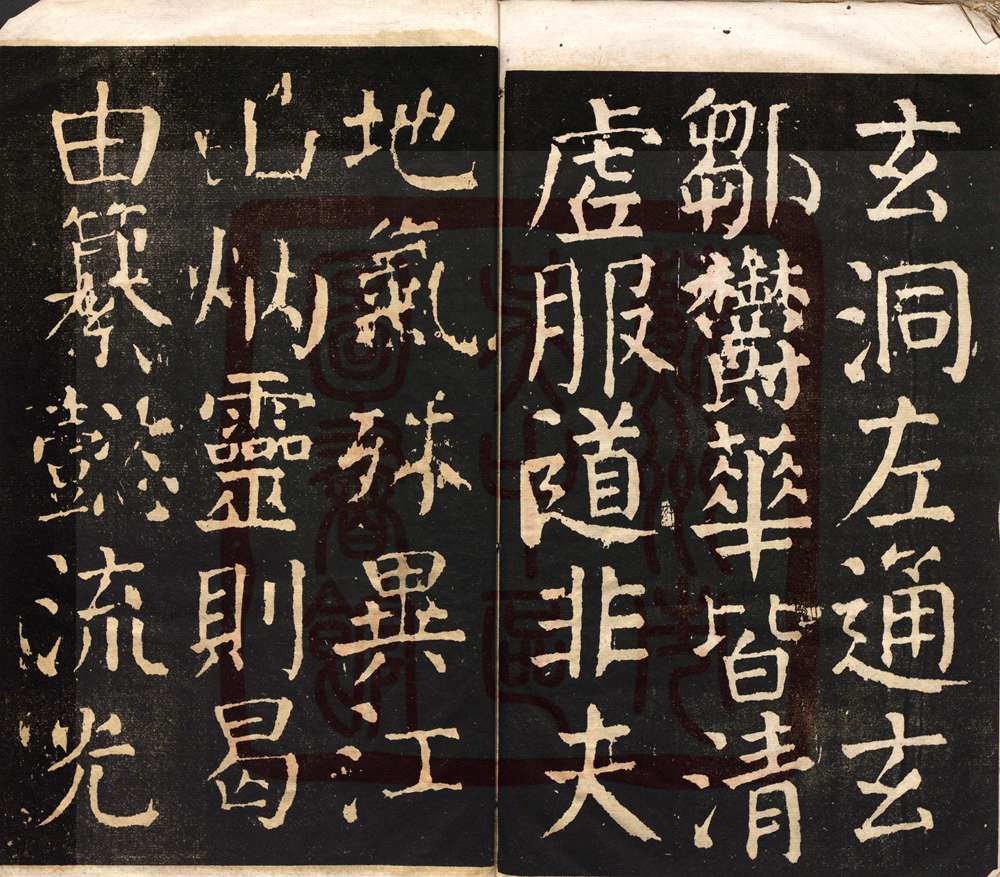 玄洞左通玄
鄒鬱華皆清
虛服道非夫
地氣殊異江
山炳靈則曷
由纂懿流光